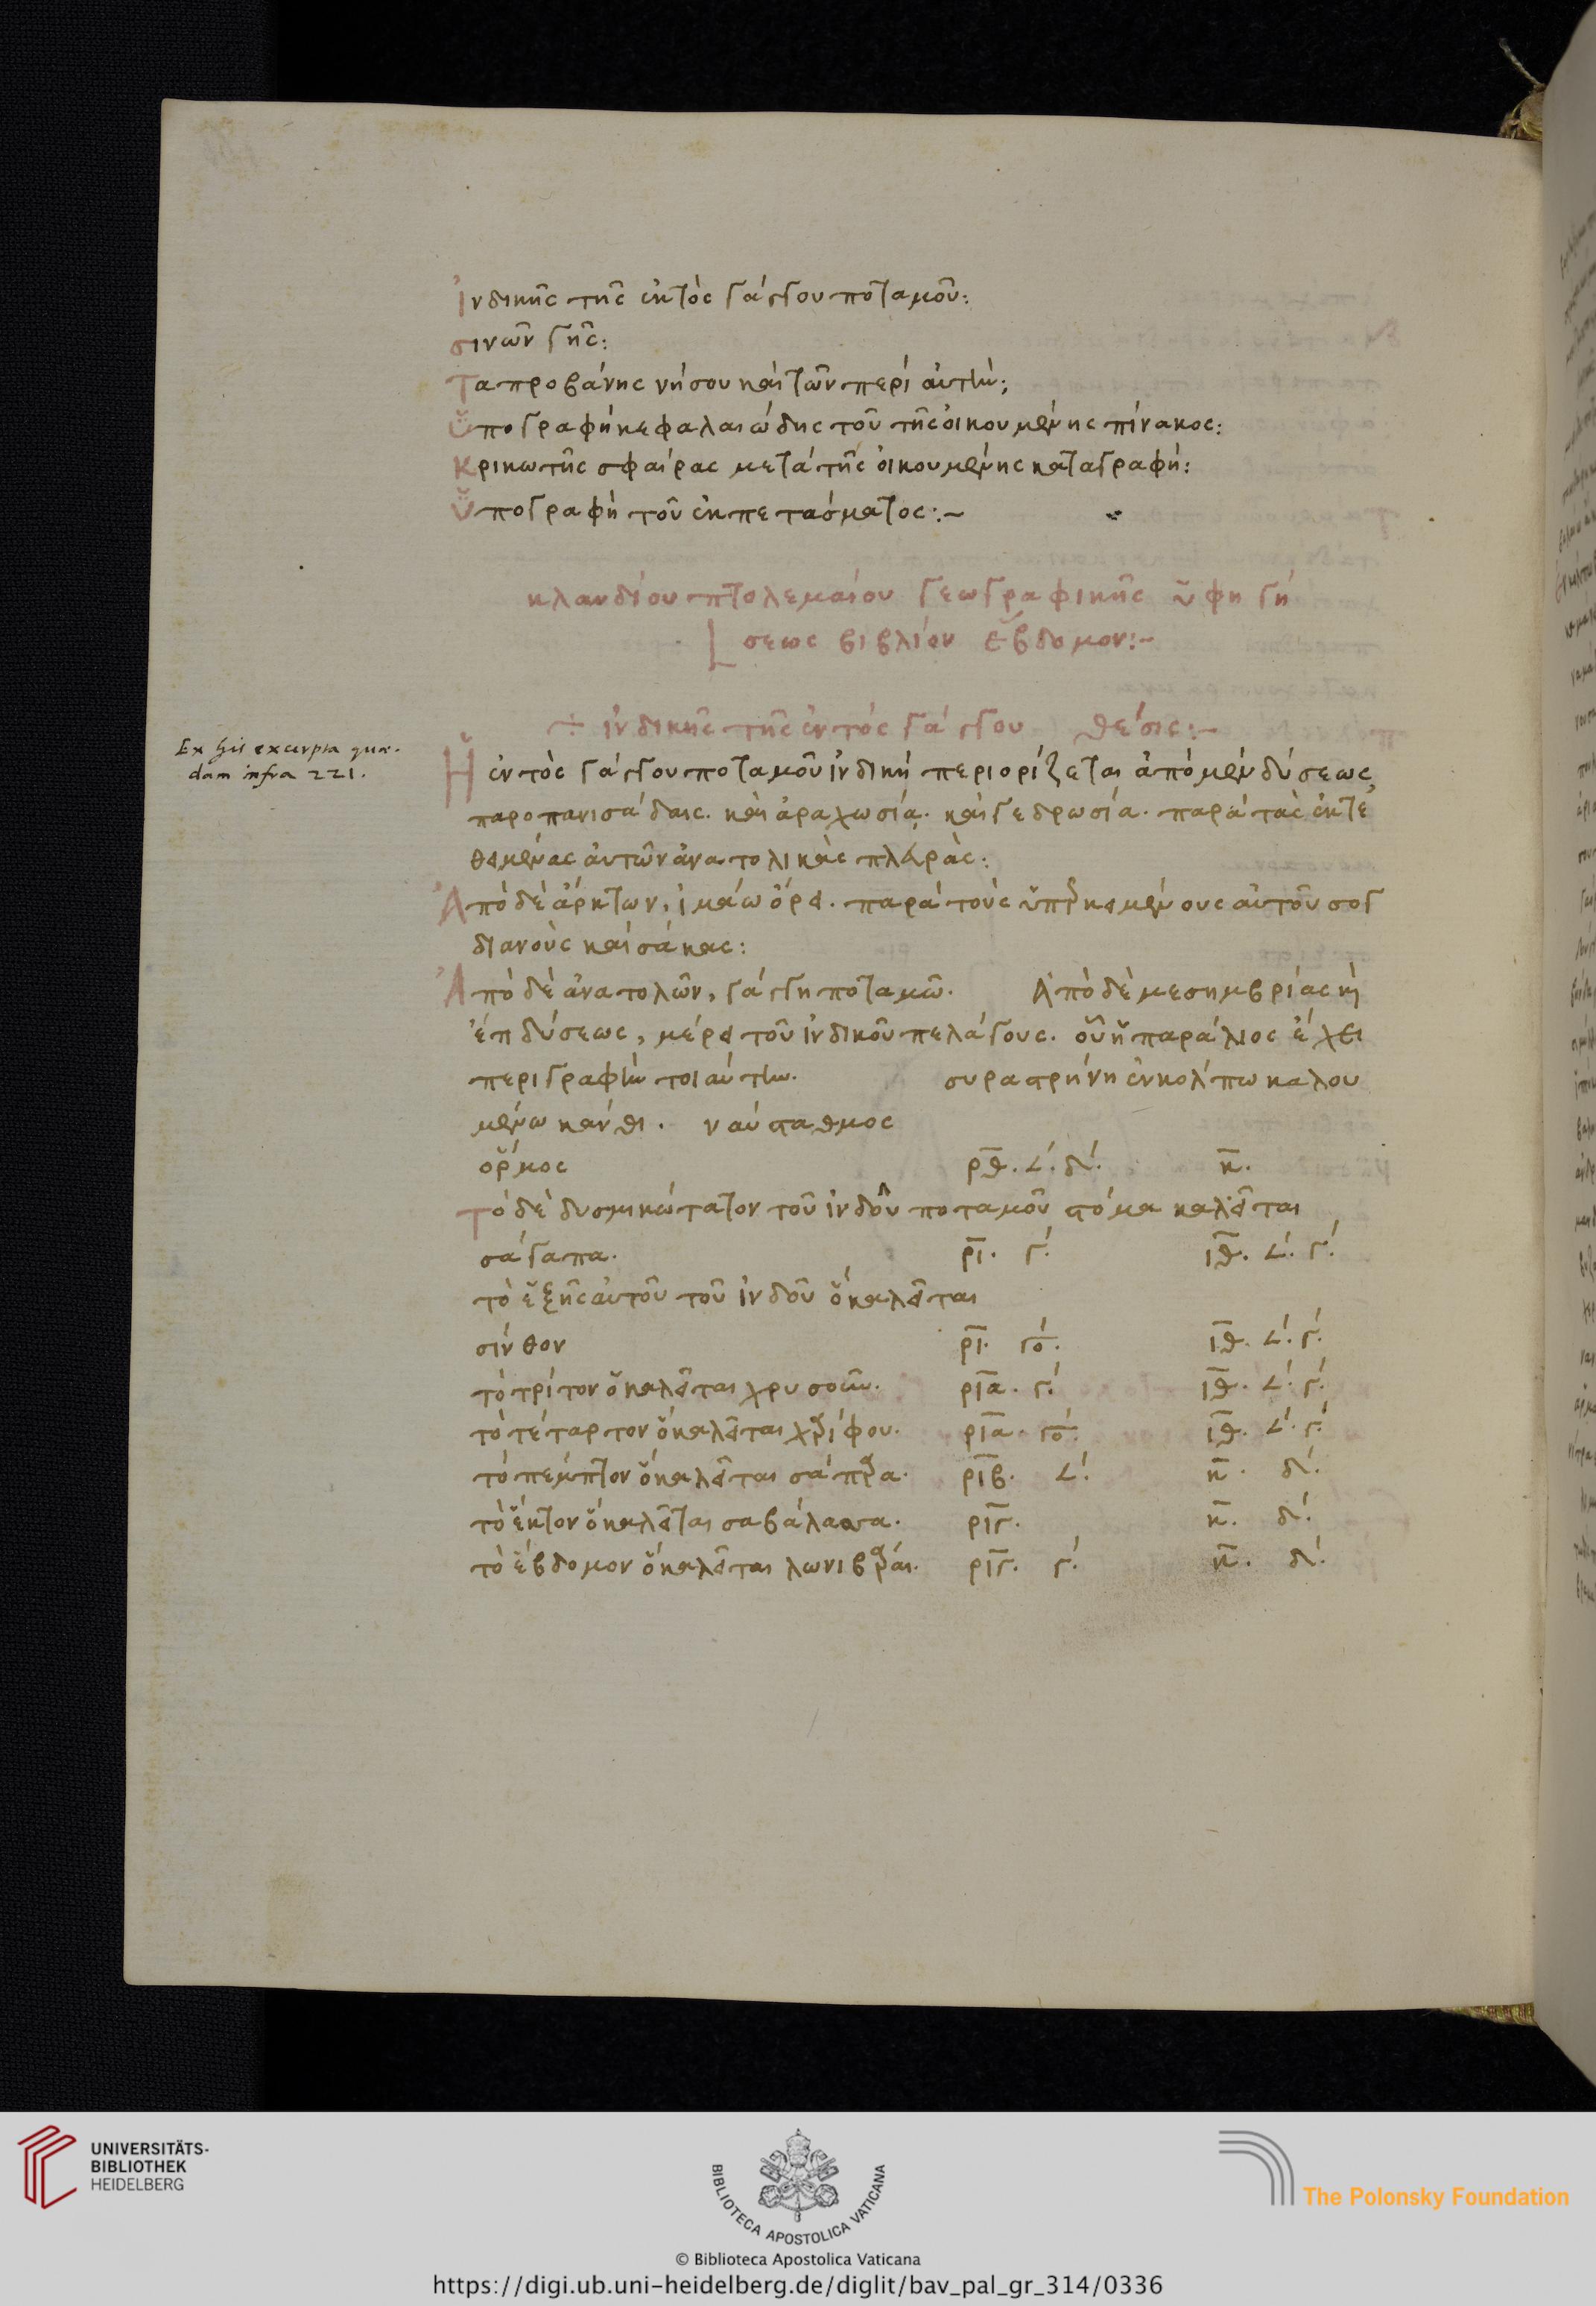 Ἰνδικῆς τῆς ἐκτὸς γάγγου ποταμοῦ:
σινῶν γῆς:
Ταπροβάνης νήσου καὶ τῶν περὶ αὐτήν:
Ὑπογραφὴ κεφαλαιώδης τοῦ τῆς οἰκουμένης πίνακος:
Κρικωτῆς σφαίρας μετὰ τῆς οἰκουμένης καταγραφή:
Ὑπογραφὴ τοῦ ἐκπετάσματος:~
κλαυδίου πτολεμαίου γεωγραφικῆς ὑφηγή
σεως βιβλίον ἕβδομον:~
÷ ἰνδικῆς τῆς ἐντός γάγγου θέσις:~
Ex his excerpta quae-
dam infra 221.
Ἡ ἐντὸς γάγγου ποταμοῦ ἰνδικὴ περιορίζεται ἀπὸ μὲν δύσεως
παροπανισάδαις. καὶ ἀραχωσία. καὶ γεδρωσία. παρὰ τὰς ἐκτε
θειμένας αὐτῶν ἀνατολικὰς πλευράς:
Ἀπὸ δὲ ἄρκτων, ἰμάω ὄρει. παρὰ τοὺς ὑπερκειμένους αὐτοῦ σογ
διανοὺς καὶ σάκας:
Ἀπὸ δὲ ἀνατολῶν, γάγγη ποταμῶ. Ἀπὸ δὲ μεσημβρίας κὴ
ἔτι δύσεως, μέρει τοῦ ἰνδικοῦ πελάγους. οὗ ἡ παράλιος ἔχει
περιγραφὴν τοιαύτην. συραστρήνη ἐν κολπω καλου
μένω κανθι. ναύσταθμος
ὅρμος ρθ. 𐅵. δ. κ.
Τὸ δὲ δυσμικώτατον τοῦ ἰνδοῦ ποταμοῦ στόμα καλεῖται
σάγαπα. ρι. γ. ιθ. 𐅵. γ.
τὸ ἑξῆς αὐτοῦ τοῦ ἰνδοῦ ὃ καλεῖται
σίνθον ρι. γο. ιθ. 𐅵. γ.
τὸ τρίτον ὃ καλεῖται χρυσοῦν. ρια. γ. ιθ. 𐅵. γ.
τὸ τέταρτον ὃ καλεῖται χαρίφου. ρια. γο. ιθ. 𐅵. γ.
τὸ πέμπτον ὃ καλεῖται σάπαρα. ριβ. 𐅵. κ. δ.
τὸ ἕκτον ὃ καλεῖται σαβάλασσα. ριγ. κ. δ.
τὸ ἕβδομον ὃ καλεῖται λωνιβάραι. ριγ. γ. κ. δ.
UNIVERSITÄTS-
BIBLIOTHEK
HEIDELBERG
BIBLIOTECA APOSTOLICA VATICANA
The Polonsky Foundation
© Biblioteca Apostolica Vaticana
https://digi.ub.uni-heidelberg.de/diglit/bav_pal_gr_314/0336